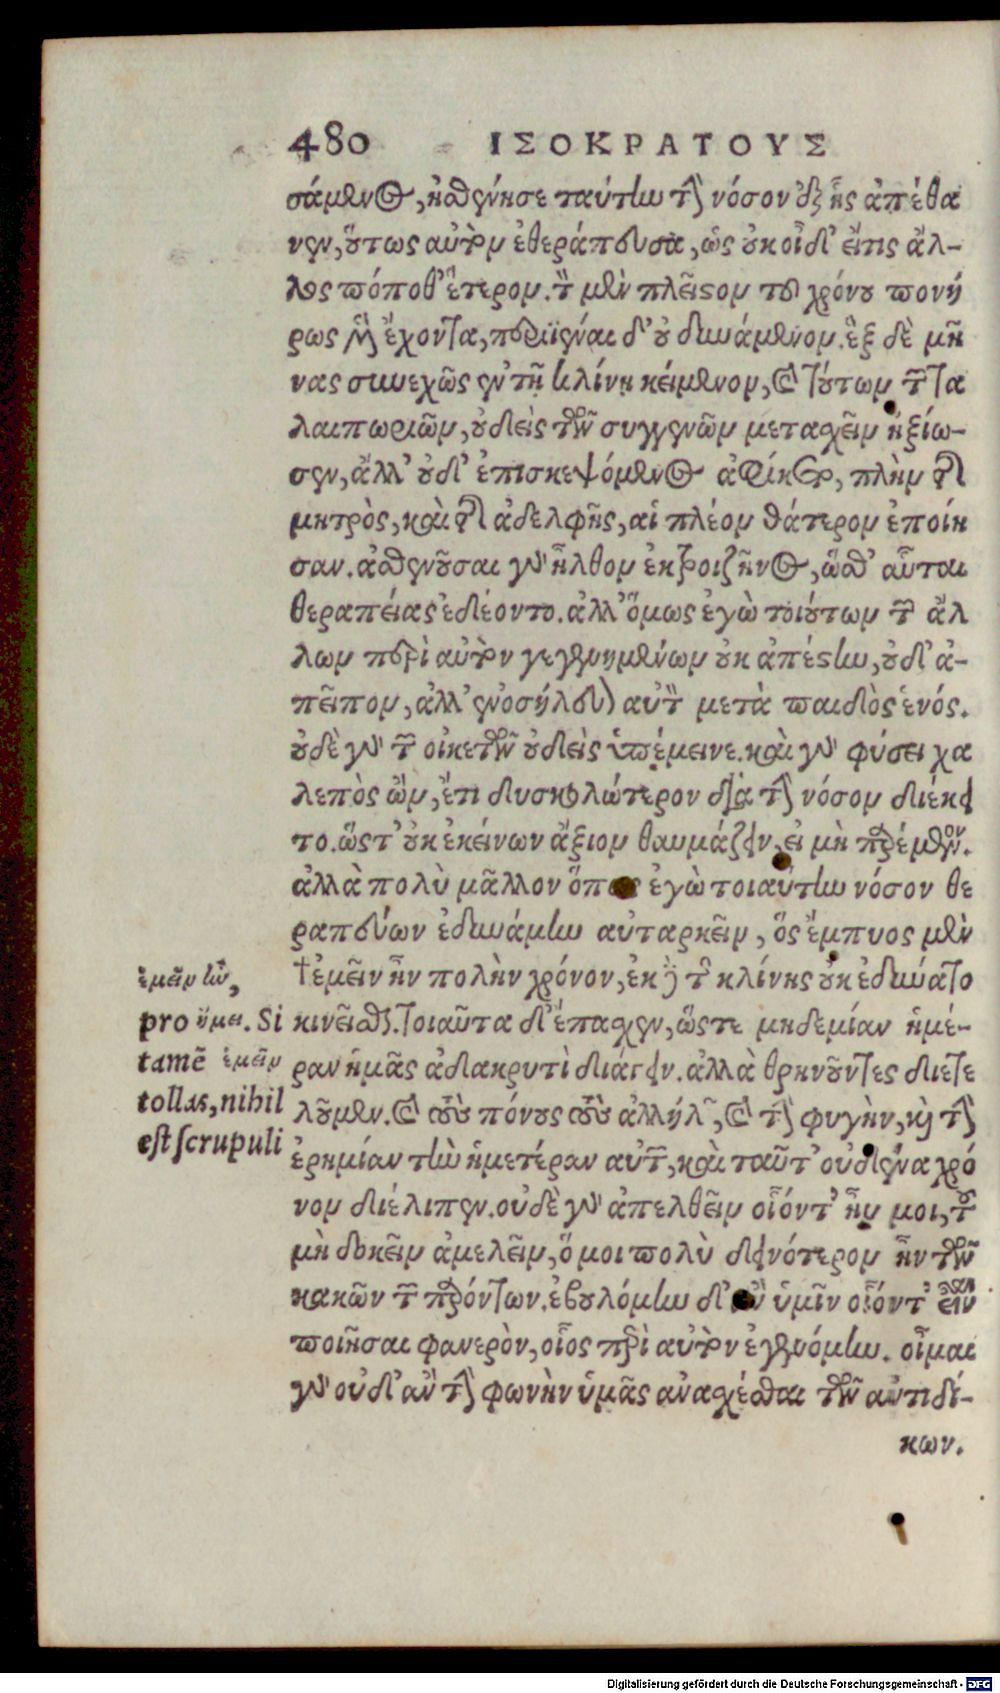 480 ΙΣΟΚΡΑΤΟΥΣ
σάμενος, ἠσθένησε ταύτην τὴν νόσον ἐξ ἧς ἀπέθα
νεν, οὕτως αὐτὸν ἐθεράπευσα, ὡς οὐκ οἶδ' εἴ τις ἄλ-
λος πόποθ' ἕτερον. τὸν μὲν πλεῖστον τοῦ χρόνου πονή
ρως μὲν ἔχοντα, περιϊέναι δ' οὐ δυνάμενον. ἓξ δὲ μῆ
νας συνεχῶς ἐν τῇ κλίνῃ κείμενον, καὶ τούτων τῶν τα
λαιπωριῶν, οὐδεὶς τῶν συγγενῶν μετασχεῖν ἠξίω-
σεν, ἀλλ' οὐδ' ἐπισκεψόμενος ἀφίκετο, πλὴν τῆς
μητρὸς, καὶ τῆς ἀδελφῆς, αἳ πλέον θάτερον ἐποίη
σαν. ἀσθενοῦσαι γὰρ ἦλθον ἐκ Τροιζῆνος, ὥσθ' αὗται
θεραπείας ἐδέοντο. ἀλλ' ὅμως ἐγὼ τοιούτων τῶν ἄλ
λων περὶ αὐτὸν γεγενημένων οὐκ ἀπέστην, οὐδ' ἀ-
πεῖπον, ἀλλ' ἐνοσήλευον αὐτὸν μετὰ παιδὸς ἑνός.
οὐδὲ γὰρ τῶν οἰκετῶν οὐδεὶς ὑπέμεινε. καὶ γὰρ φύσει χα
λεπὸς ὢν, ἔτι δυσκολώτερον διὰ τὴν νόσον διέκει
το. ὥστ' οὐκ ἐκείνων ἄξιον θαυμάζειν, εἰ μὴ παρέμενον.
ἀλλὰ πολὺ μᾶλλον ὅπως ἐγὼ τοιαύτην νόσον θε
ραπεύων ἐδυνάμην αὐταρκεῖν, ὃς ἔμπυος μὲν
†ἐμεῖν ἦν πολὴν χρόνον, ἐκ δὲ τῆς κλίνης οὐκ ἐδύνατο
κινεῖσθαι. τοιαῦτα δ' ἔπασχεν, ὥστε μηδεμίαν ἡμέ-
ραν ἡμᾶς ἀδακρυτὶ διάγειν. ἀλλὰ θρηνοῦντες διετε
λοῦμεν. καὶ τοὺς πόνους τοὺς ἀλλήλων, καὶ τὴν φυγὴν, καὶ τὴν
ἐρημίαν τὴν ἡμετέραν αὐτῶν, καὶ ταῦτ' οὐδένα χρό
νον διέλιπεν. οὐδὲ γὰρ ἀπελθεῖν οἷόντ' ἦν μοι, τοῦ
μὴ δοκεῖν ἀμελεῖν, ὅ μοι πολὺ δεινότερον ἦν τῶν
κακῶν τῶν παρόντων. ἐβουλόμην δ' ἂν ὑμῖν οἷόντ' εἶναι
ποιῆσαι φανερὸν, οἷος περὶ αὐτὸν ἐγενόμην. οἶμαι
γὰρ οὐδ' ἂν τὴν φωνὴν ὑμᾶς ἀνασχέσθαι τῶν ἀντιδί-
κων.
ἐμεῖν ἦν,
pro ἤμει. Si
tamẽ ἐμεῖν
tollas, nihil
est scrupuli
Digitalisierung gefördert durch die Deutsche Forschungsgemeinschaft - DFG